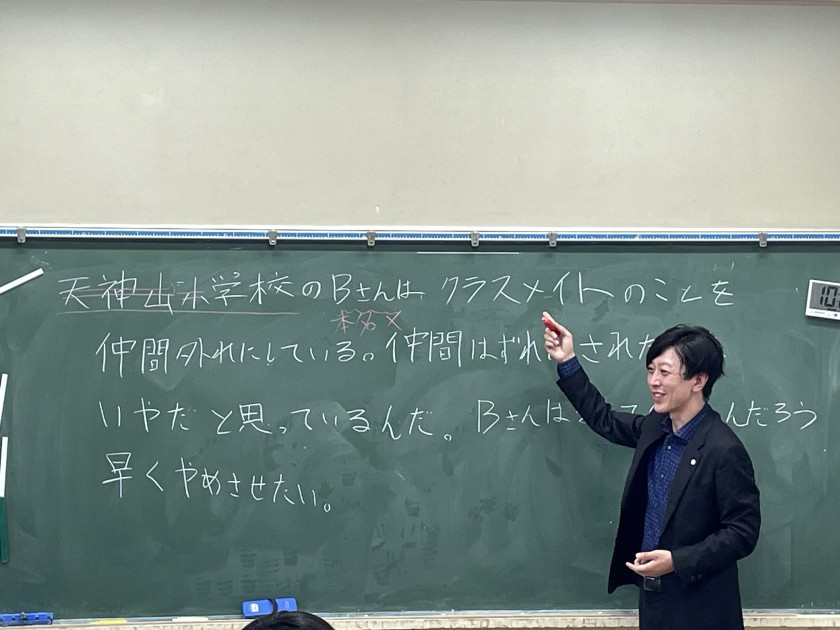 天神山小学校のBさんは、クラスメイトのことを
本名×
仲間外れにしている。仲間はずれ され
いやだと思っているんだ。Bさんは んだろう
早くやめさせたい。
10